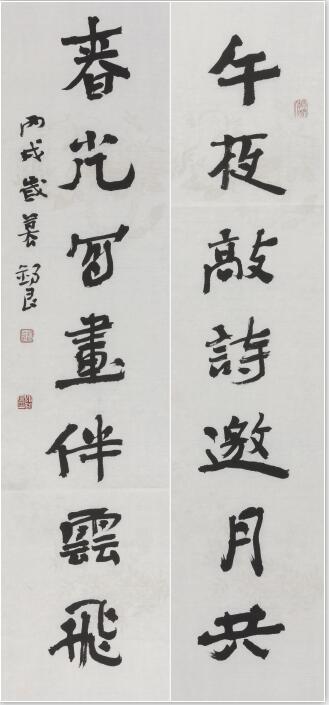 午夜敲詩邀月共
春光写畫伴雲飛
丙戌歲暮 錫良